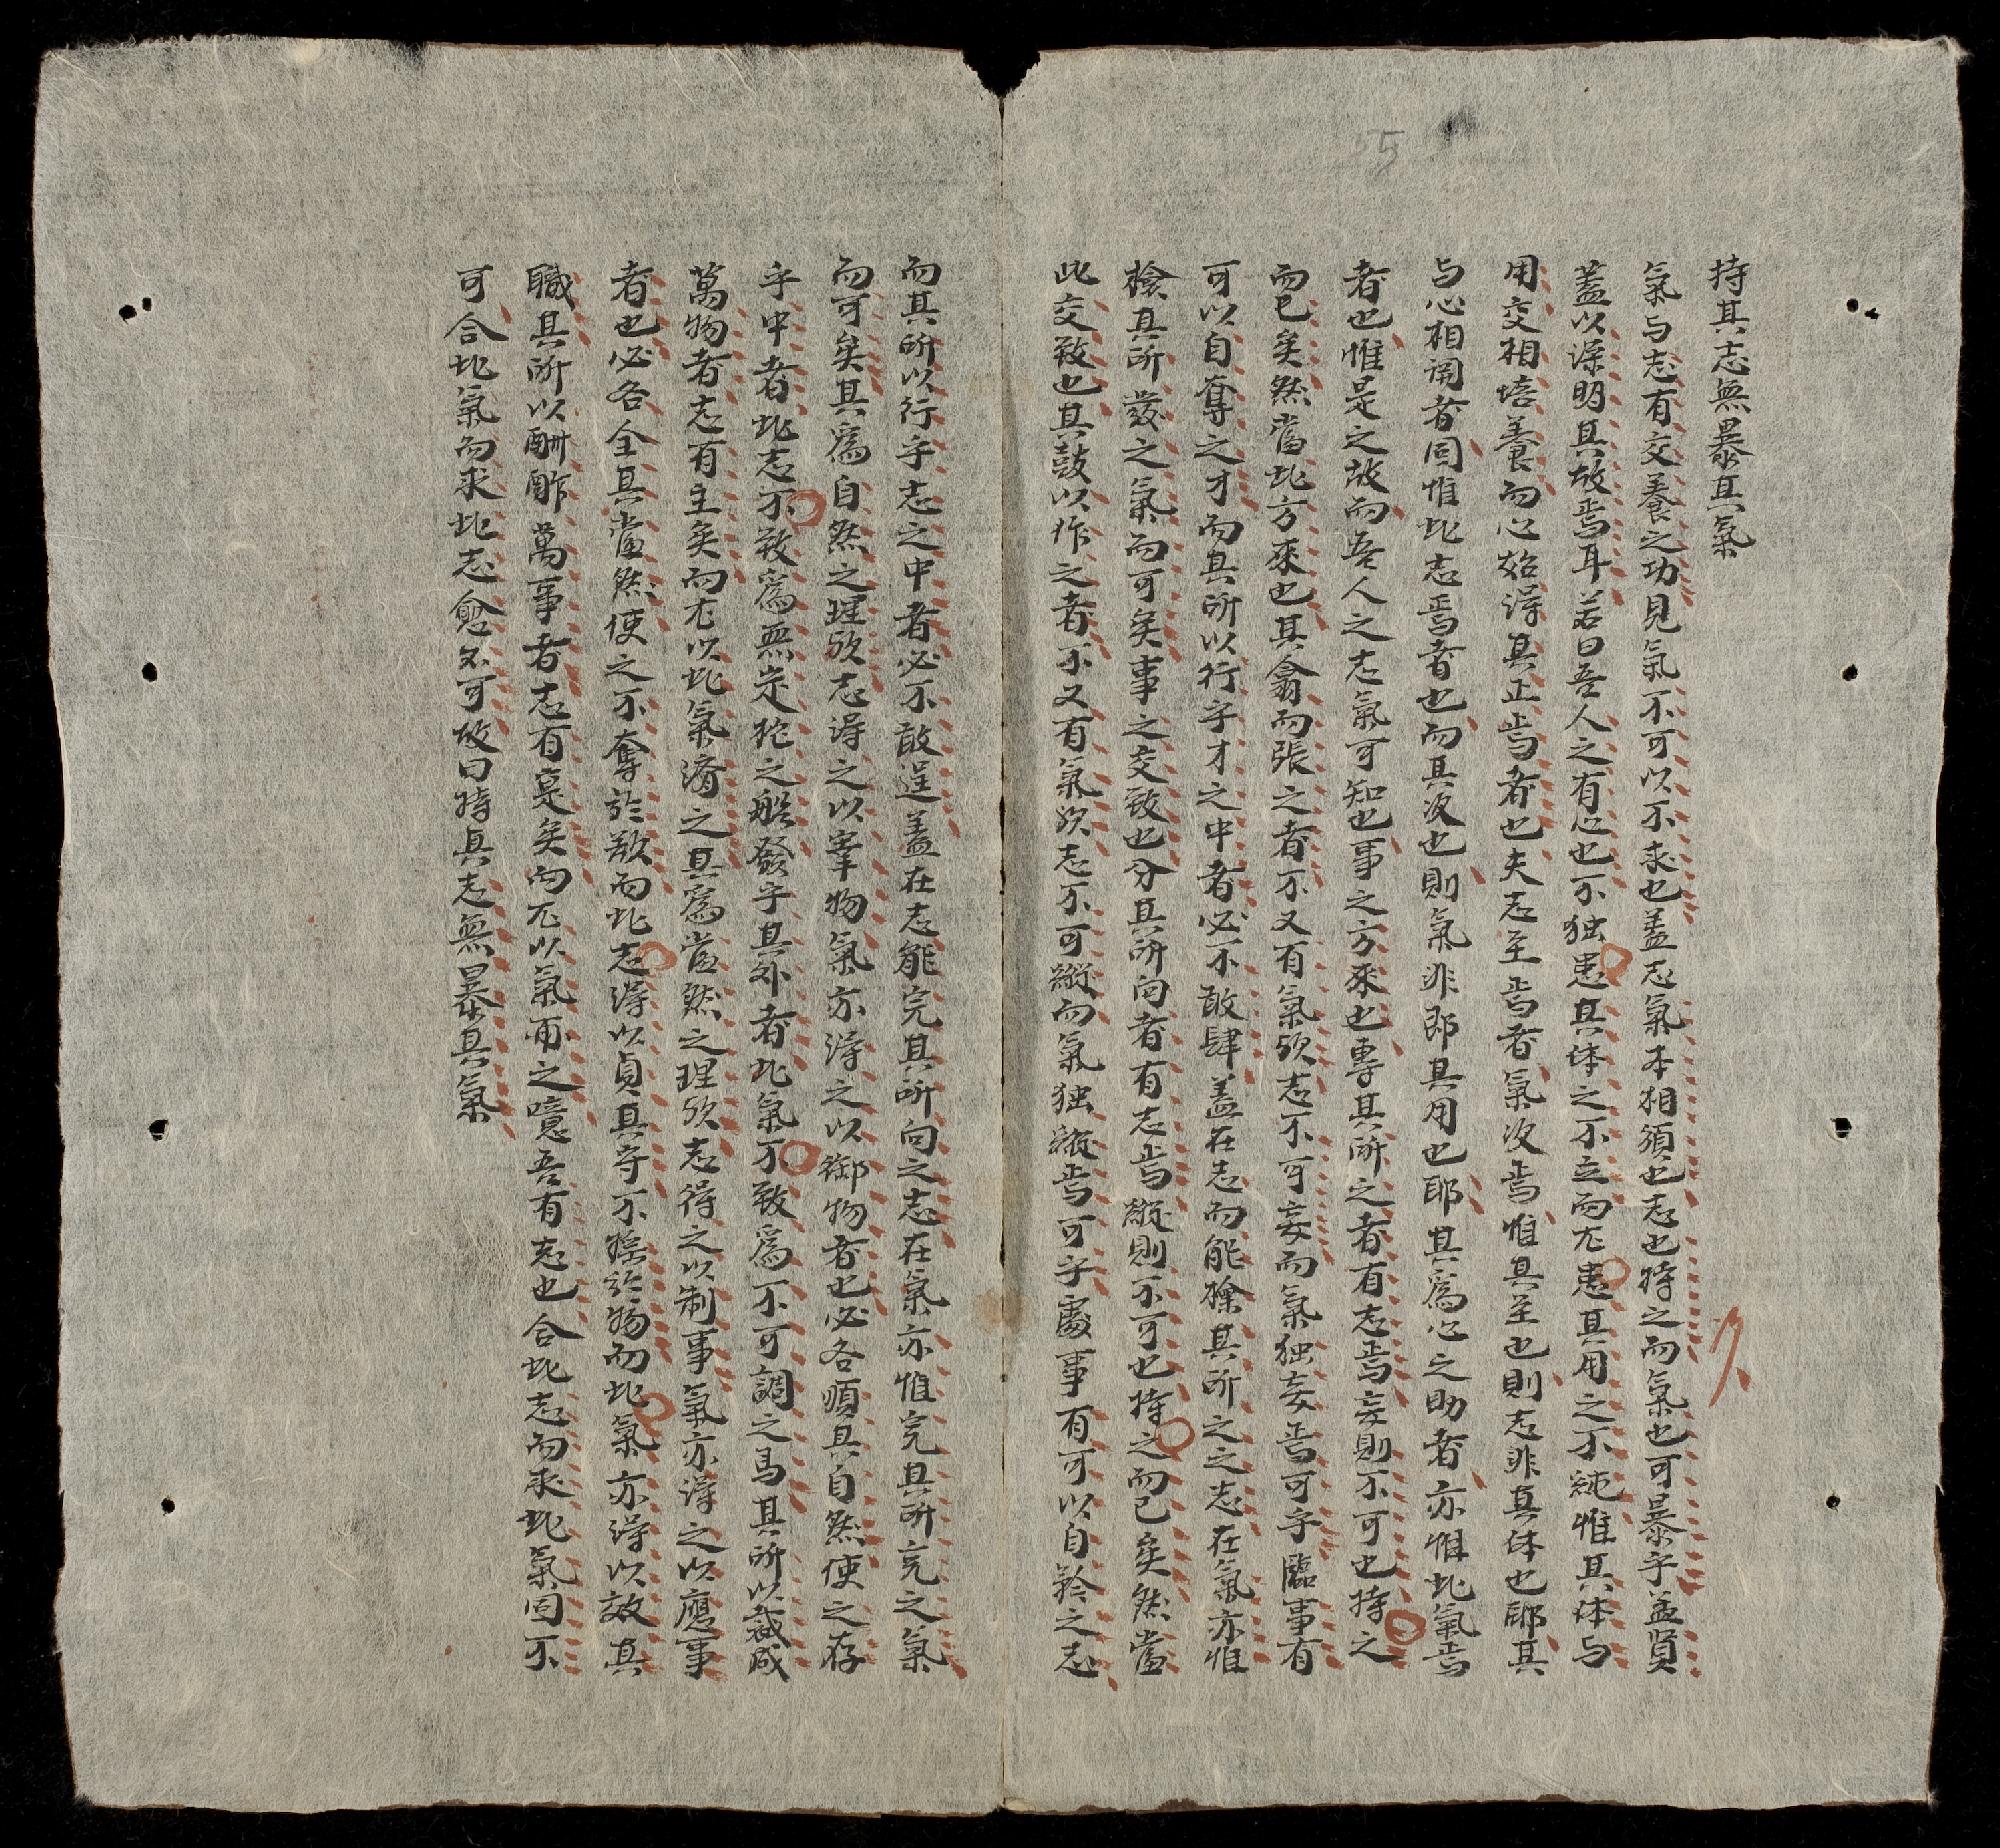 55
持其志無暴其氣
氣与志有交養之功見氣不可以不求也盖志氣本相須也志也持之而氣也可暴乎孟賢
蓋以深明其故焉耳若曰吾人之有心也不独患其体之不立而尤患其用之不純惟其体与
用交相培養而心始得其正焉者也夫志至焉者氣次焉惟其至也則志非其体也耶其
与心相謂者同惟此志焉者也而其次也則氣非即其用也耶其爲心之助者亦惟此氣焉
者也惟是之故而吾人之志氣可知也事之方來也專其所之者有志焉妄則不可也持之
而已矣然當此方來也其翕而張之者不又有氣欤志不可妄而氣独妄焉可乎臨事有
可以自奪之才而其所以行乎才之中者必不敢肆盖在志而能操其所之之志在氣亦惟
檢其所發之氣而可矣事之交致也分其所向者有志焉縱則不可也持之而已矣然當
此交致也其鼓以作之者不又有氣欤志不可縱而氣独縱焉可乎處事有可以自矜之志
而其所以行乎志之中者必不敢逞盖在志能完其所向之志在氣亦惟完其所充之氣
而可矣其爲自然之理欤志得之以宰物氣亦得之以御物者也必各順其自然使之存
乎中者此志不致爲無定柁之船發乎其外者此氣不致爲不可調之馬其所以裁成
萬物者志有主矣而尤以此氣濟之其爲當然之理欤志得之以制事氣亦得之以應事
者也必各全其當然使之不奪於敵而此志得以貞其守不撓於物而此氣亦得以效其
職其所以酬酢萬事者志有定矣而尤以氣兩之噫吾有志也合此志而求此氣固不
可合此氣而求此志愈不可故曰持其志無暴其氣